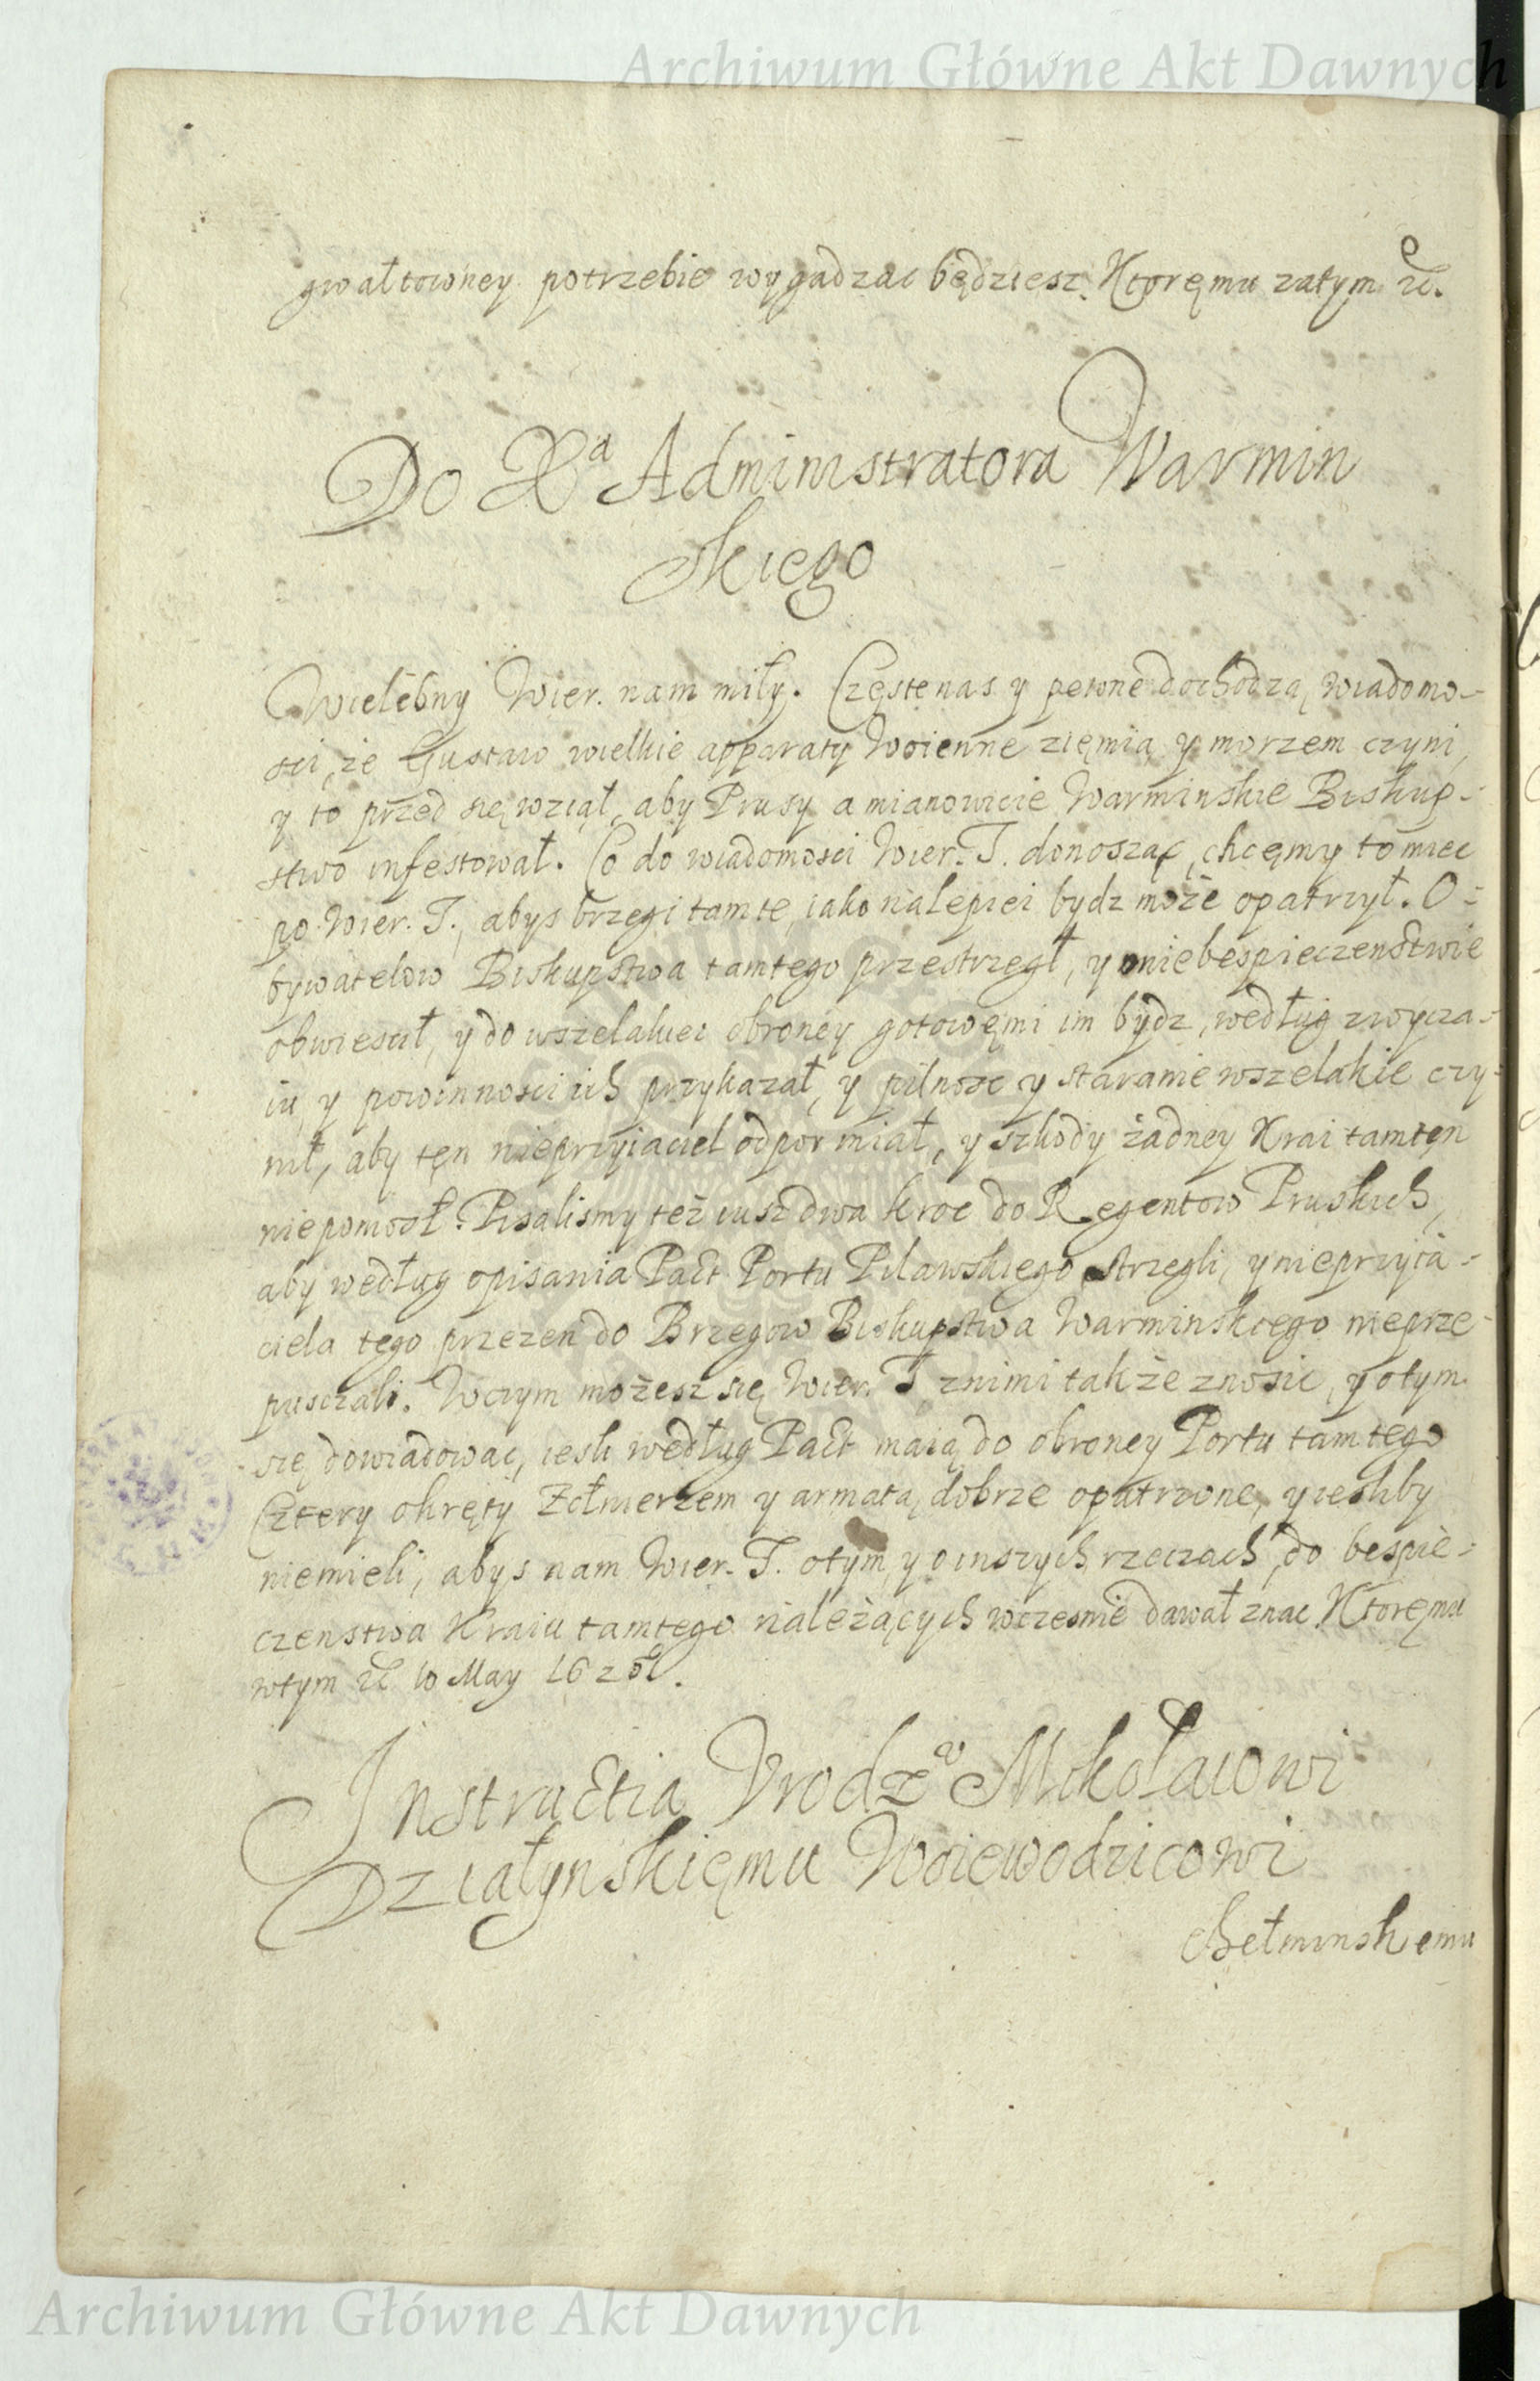 Archiwum Główne Akt Dawnych
gwałtowney potrzebie wygadzac będziesz. Ktoręmu zatym etc.
Do Xa Administratora Warmin
skiego
Wielebny Wier. nam miły. Częste nas y pewne dochodzą wiadomo-
sci, że Gustaw wielkie apparaty Woienne zięmią y morzem czyni,
y to przed się wziął, aby Prusy a mianowicie Warminskie Biskup-
stwo infestował. Co do wiadomosci Wier. T. donosząc, chcęmy to miec
po Wier. T., abys brzegi tamte, iako nalepiei bydz może opatrzył. O-
bywatelow Biskupstwa tamtego przestrzegł, y o niebespieczenstwie
obwiescił, y do wszelakiei obroney gotowęmi im bydz, według zwycza-
iu, y powinnosci ich przykazał, y pilnosc y staranie wszelakie czy-
nił, aby tęn nieprzyiaciel odpor miał, y szkody żadney Krai tamtęn
nie pomosł. Pisalismy też iusz dwa kroc do Regentow Pruskich,
aby według opisania Pact Portu Pilawskiego strzegli, y nieprzyia-
ciela tego przezen do Brzegow Biskupstwa Warminskiego nieprze-
pusczali. Wczym możesz się Wier. T. znimi także znosic, y otym
się dowiadowac, iesli według Pact maią do obroney Portu tamtego
Cztery okręty Żołnierzem y armatą dobrze opatrzone, y iesliby
niemieli, abys nam Wier. T. otym, y o inszych rzeczach, do bespie-
czenstwa Kraiu tamtęgo należących wczesnie dawał znac. Ktoręmu
wtym etc. 10 May 162
Instructia Vrodz° Mikołaiowi
Działynskięmu Woiewodzicowi
chełminskiemu
Archiwum Główne Akt Dawnych